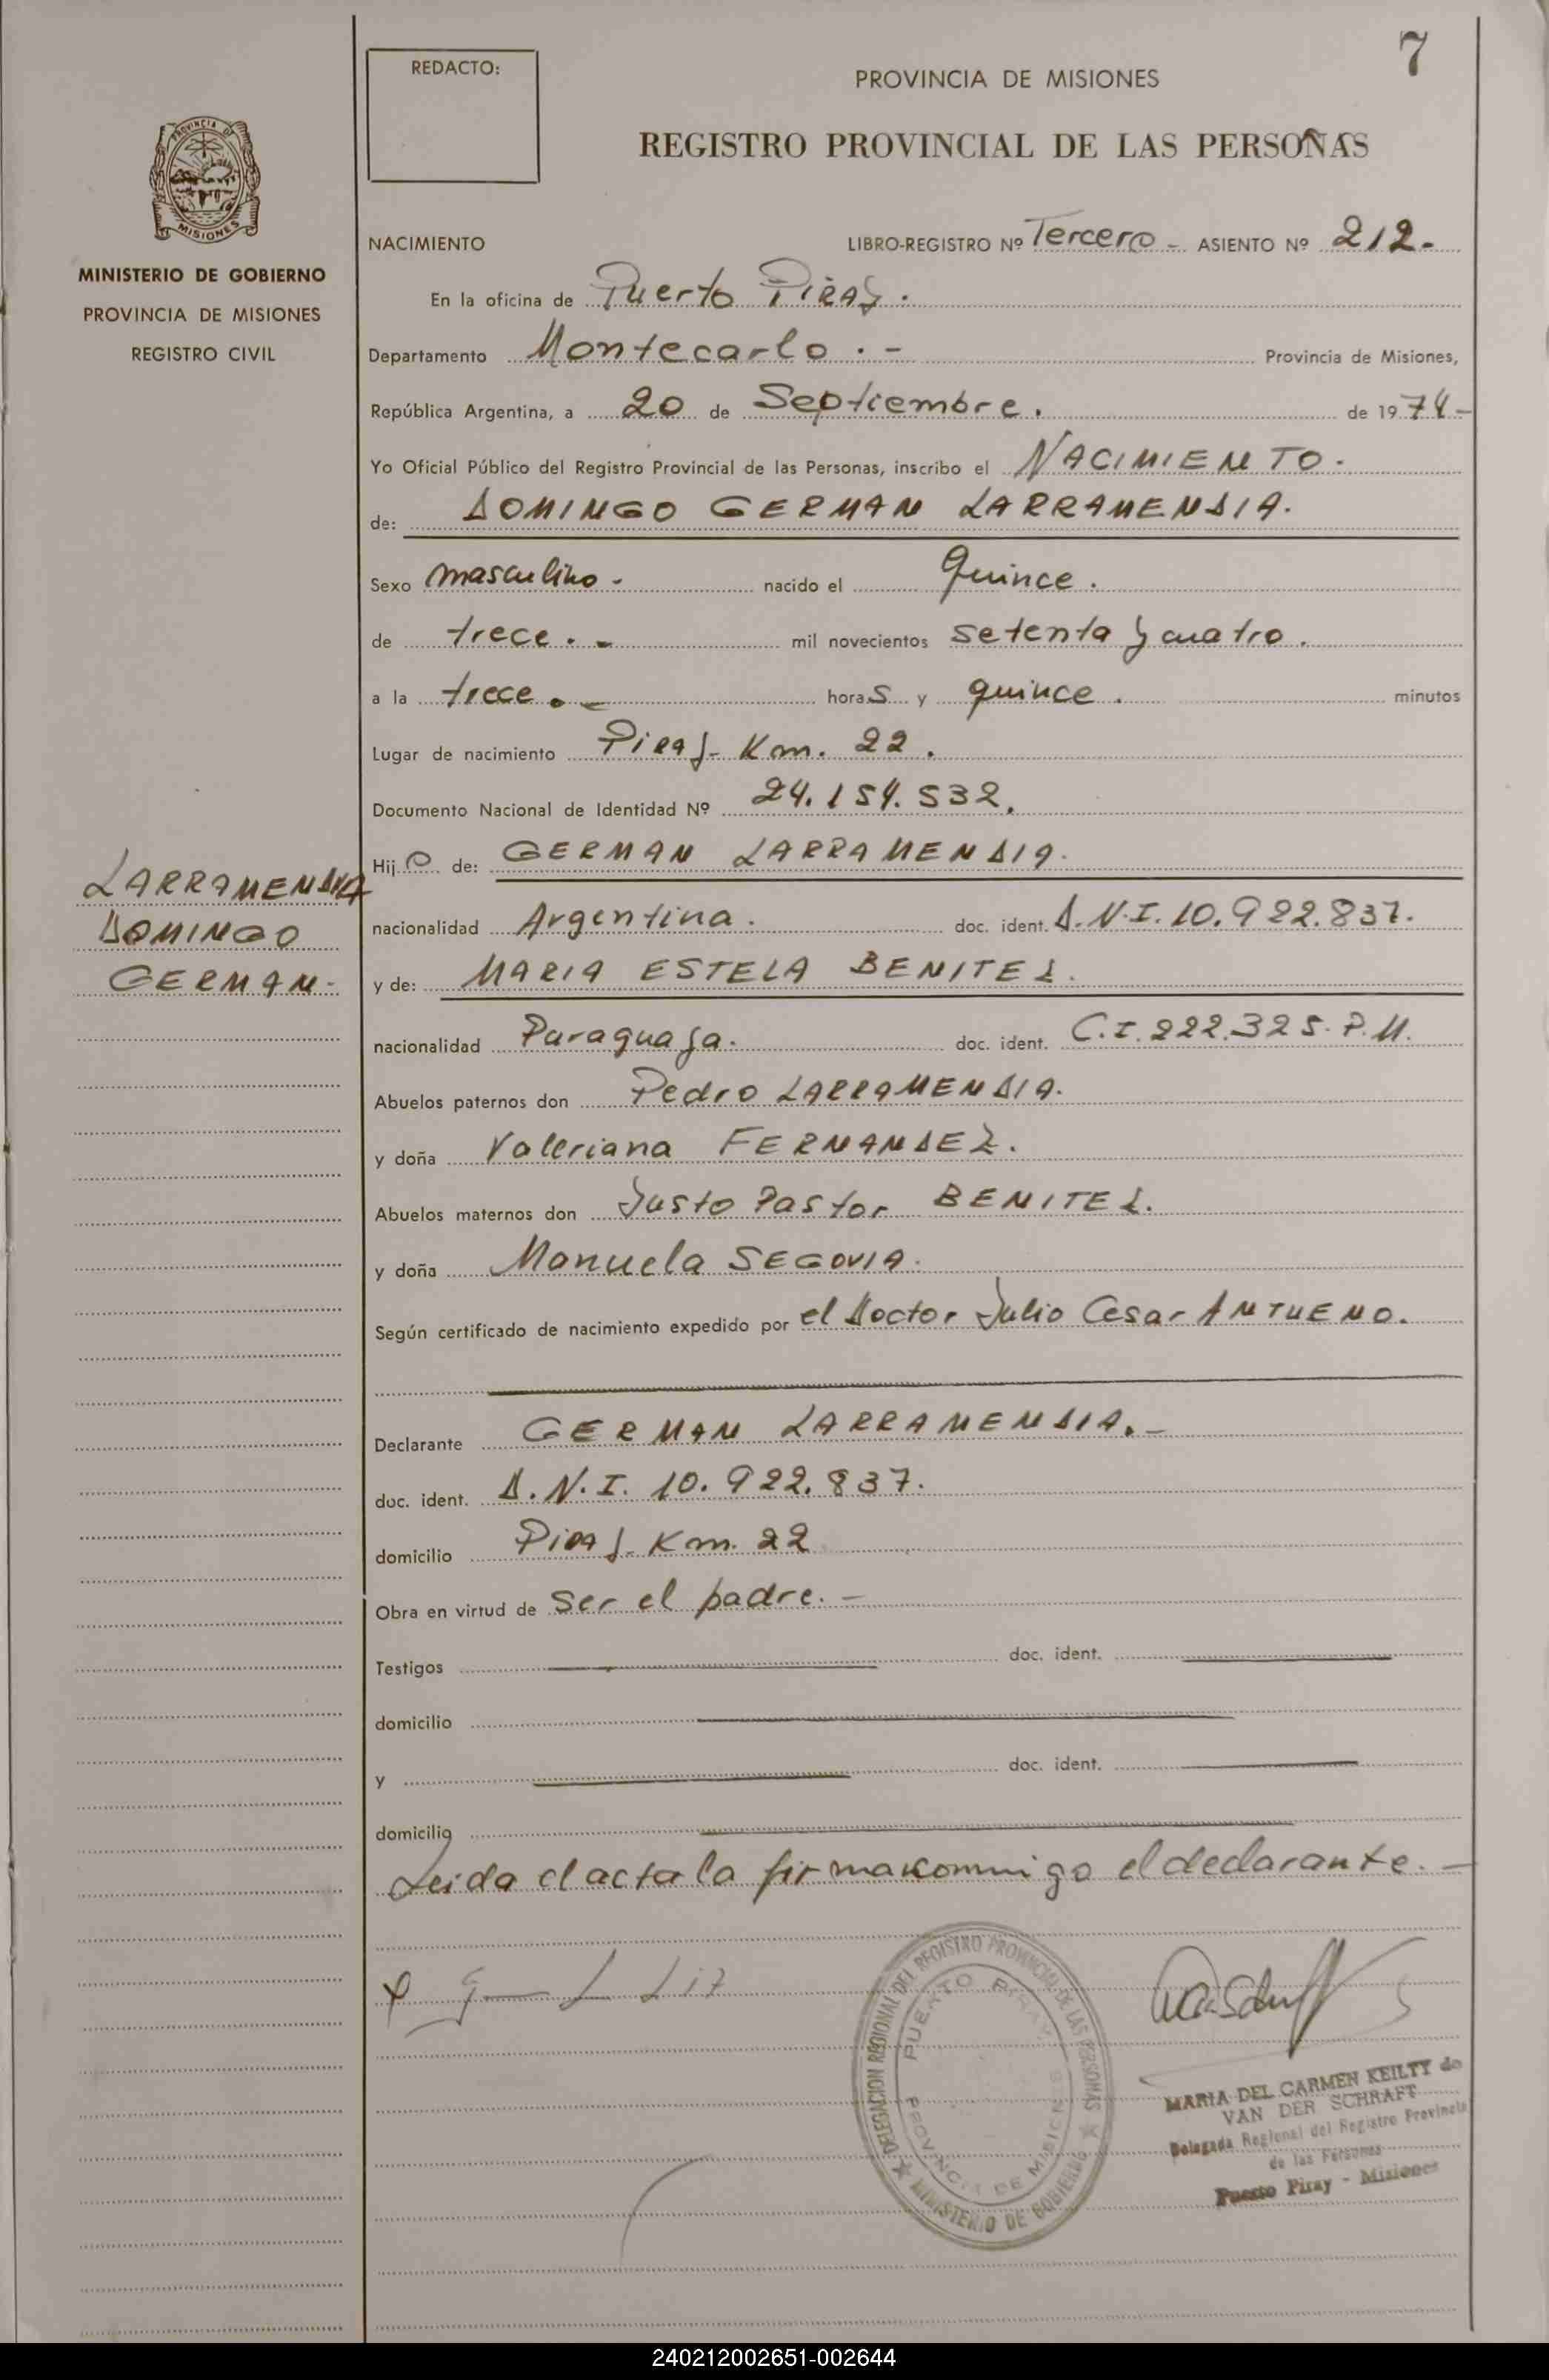 7
REDACTO:
PROVINCIA DE MISIONES
REGISTRO PROVINCIAL DE LAS PERSONAS
PROVINCIA DE
MISIONES
MINISTERIO DE GOBIERNO
PROVINCIA DE MISIONES
REGISTRO CIVIL
NACIMIENTO LIBRO-REGISTRO Nº Tercero - ASIENTO Nº 212.-
En la oficina de Puerto PIRAY.
Departamento Montecarlo.- Provincia de Misiones,
República Argentina, a 20 de Septiembre. de 1974-
Yo Oficial Público del Registro Provincial de las Personas, inscribo el NACIMIENTO.
de: DOMINGO GERMAN LARRAMENDIA.
Sexo masculino.- nacido el Quince.
de trece.- mil novecientos setenta y cuatro.
a la trece.- horas y quince. minutos
Lugar de nacimiento Piray- Km. 22.
Documento Nacional de Identidad Nº 24.154.532.
Hijo de: GERMAN LARRAMENDIA.
LARRAMENDIA
DOMINGO
GERMAN.-
nacionalidad Argentina. doc. ident. D.N.I. 10.922.837.
y de: MARIA ESTELA BENITEZ.
nacionalidad Paraguaya. doc. ident. C.I. 222.325. P.M.
Abuelos paternos don Pedro LARRAMENDIA.
y doña Valeriana FERNANDEZ.
Abuelos maternos don Justo Pastor BENITEZ.
y doña Manuela SEGOVIA.
Según certificado de nacimiento expedido por el Doctor Julio Cesar ANTUENO.
Declarante GERMAN LARRAMENDIA.-
doc. ident. D.N.I. 10.922.837.
domicilio Piray- Km. 22
Obra en virtud de ser el padre.-
Testigos doc. ident.
domicilio
y doc. ident.
domicilio
Leida el acta la firma conmigo el declarante.-
DELEGACION REGIONAL DEL REGISTRO PROVINCIAL DE LAS PERSONAS
PUERTO PIRAY
PROVINCIA DE MISIONES
MINISTERIO DE GOBIERNO
MARIA DEL CARMEN KEILTY de
VAN DER SCHRAFT
Delegada Regional del Registro Provincial
de las Personas
Puerto Piray - Misiones
240212002651-002644